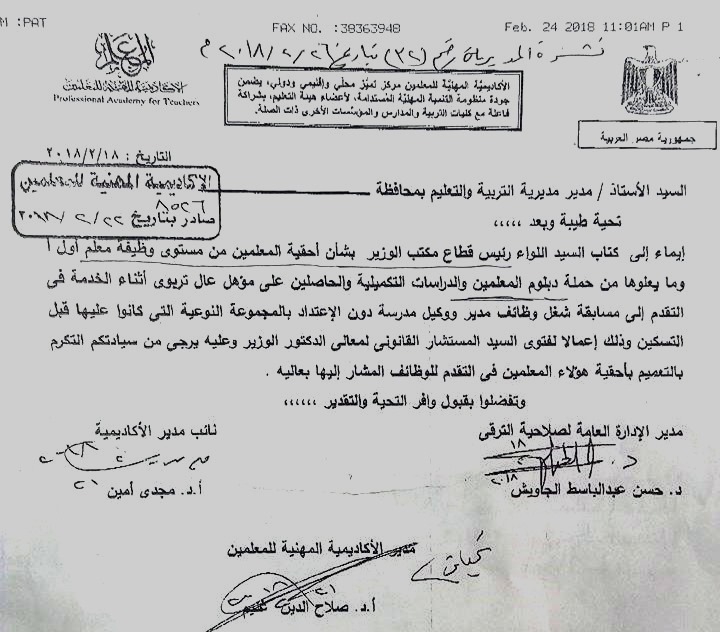 M :PAT FAX NO. :38363948 Feb. 24 2018 11:01AM P 1
نشرة المديرية رقم (٣٢) بتاريخ ٢٠١٨/٢/٢٦ م
الأكاديمية المهنية للمعلمين
Professional Academy for Teachers
الأكاديمية المهنية للمعلمين مركز تميز محلي وإقليمي ودولي، يضمن
جودة منظومة التنمية المهنية المستدامة، لأعضاء هيئة التعليم، بشراكة
فاعلة مع كليات التربية والمدارس والمؤسسات الأخرى ذات الصلة.
جمهورية مصر العربية
التاريخ : ٢٠١٨/٢/١٨
الأكاديمية المهنية للمعلمين
٨٥٢٦
صادر بتاريخ ٢٠١٨/٢/٢٢
السيد الأستاذ / مدير مديرية التربية والتعليم بمحافظة
تحية طيبة وبعد ،،،،،
إيماء إلى كتاب السيد اللواء رئيس قطاع مكتب الوزير بشأن أحقية المعلمين من مستوى وظيفة معلم أول أ
وما يعلوها من حملة دبلوم المعلمين والدراسات التكميلية والحاصلين على مؤهل عال تربوى أثناء الخدمة فى
التقدم إلى مسابقة شغل وظائف مدير ووكيل مدرسة دون الإعتداد بالمجموعة النوعية التي كانوا عليها قبل
التسكين وذلك إعمالا لفتوى السيد المستشار القانوني لمعالى الدكتور الوزير وعليه يرجي من سيادتكم التكرم
بالتعميم بأحقية هؤلاء المعلمين فى التقدم للوظائف المشار إليها بعاليه .
وتفضلوا بقبول وافر التحية والتقدير ،،،،،،
مدير الإدارة العامة لصلاحية الترقى
نائب مدير الأكاديمية
١٨
٢
٢٠١٨
د. حسن عبدالباسط الجاويش
أ.د. مجدى أمين
مدير الأكاديمية المهنية للمعلمين
أ.د. صلاح الدين غنيم